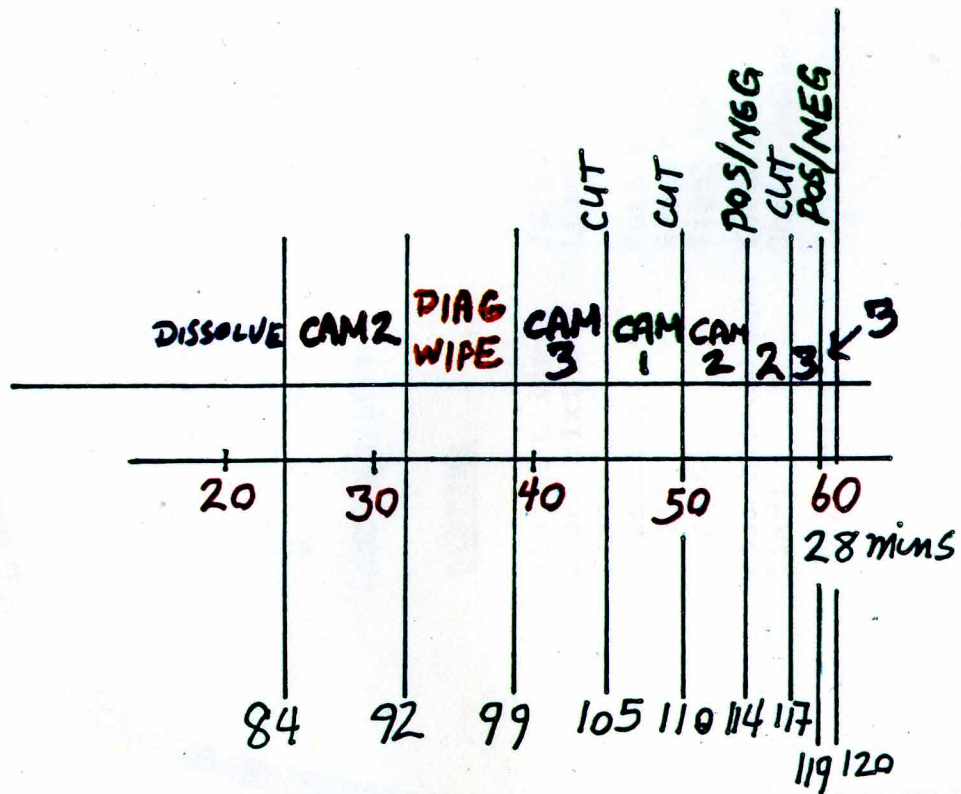 CUT
CUT
POS/NGG
CUT
POS/NEG
DISSOLVE
CAM2
DIAG
WIPE
CAM
3
CAM
1
CAM
2
2
3
3
20
30
40
50
60
28 mins
84
92
99
105
110
114
117
119
120